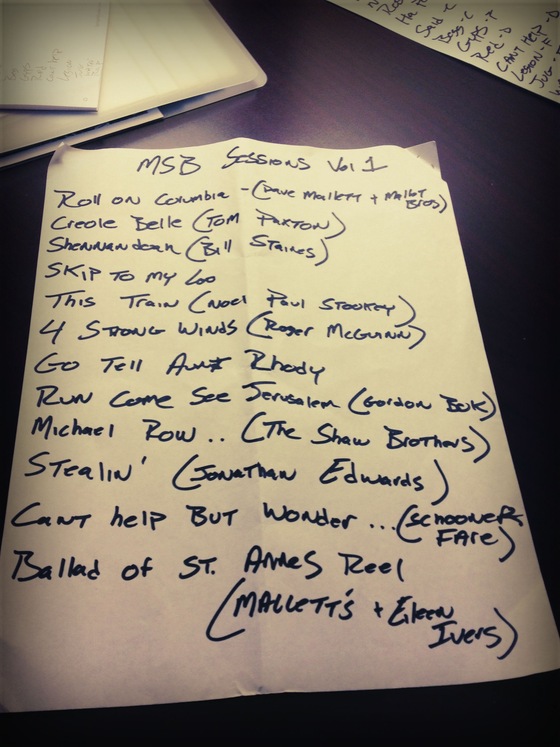 MSB Sessions Vol 1
Roll on Columbia - (Dave Mallett + Mallet
Bros)
Creole Belle (Tom Paxton)
Shennandoah (Bill Staines)
Skip to my Loo
This Train (Noel Paul Stookey)
4 Strong Winds (Roger McGuinn)
Go Tell Aunt Rhody
Run Come See Jerusalem (Gordon Bok)
Michael Row .. (The Shaw Brothers)
Stealin' (Jonathan Edwards)
Cant help BUT Wonder ... (Schooner
Fare)
Ballad of St. Annes Reel
(Mallett's + Eileen
Ivers)
Said - C
Bess - C
Red - D
Cant Help - D
Lesson - E